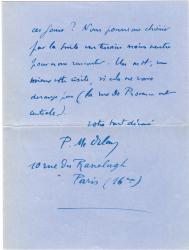 ces jours ? Nous pourrions choisir
par la suite un terrain moins neutre
pour nous rencontrer. Un mot, au
moins cette visite, si cela ne vous
dérange pas (la rue de Provence est
centrale).
votre tout dévoué
P. M. Delay
10 rue du Ranelagh
Paris (16eme)